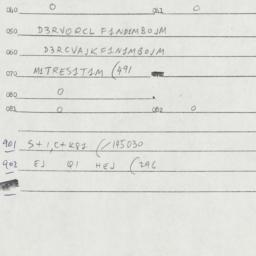 040 0 042 0
050 D3RVORCL F1NDIMBOJM
060 D3RCVAJKF1N1MBOJM
070 M1TRES1T1M (491
080 0
081 0 082 0
901 S+1,C+K81 (/195030
902 EJ Q1 HEJ (2A6